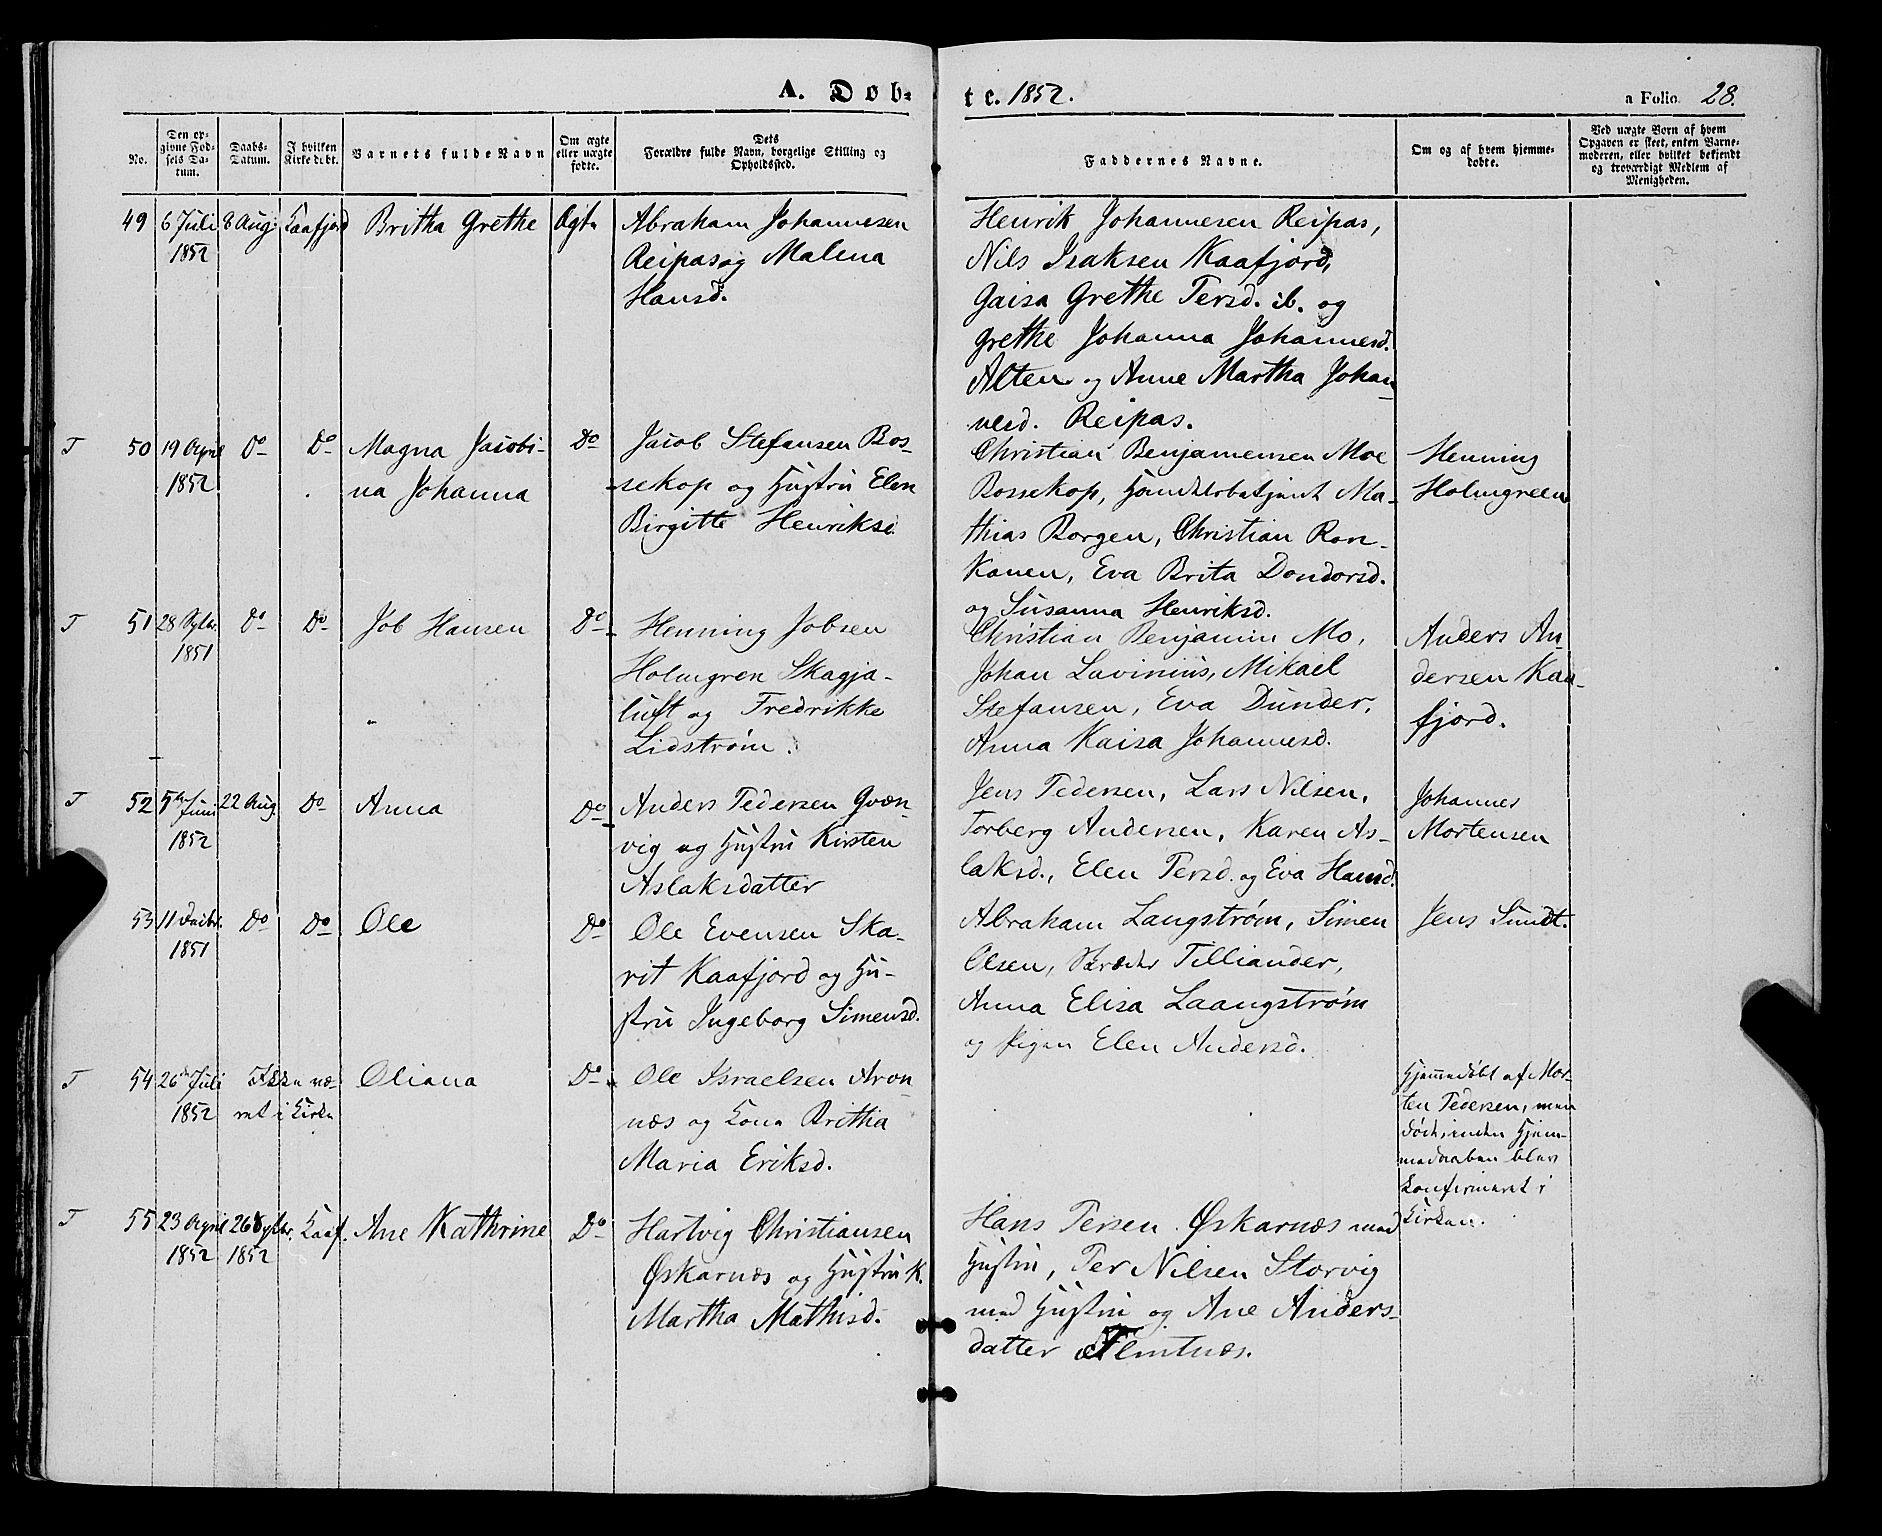 A. Døb-
te. 1852.
a Folio 28.
No.
Den op-
givne Fød-
sels Da-
tum.
Daabs-
Datum.
I hvilken
Kirke debt.
Barnets fulde Navn
Om ægte
eller uægte
fødte.
Dets
Forældre fulde Navn, borgelige Stilling og
Opholdssted.
Faddernes Navne.
Om og af hvem hjemme-
døbte.
Ved uægte Børn af hvem
Opgaven er skeet, enten Barne-
moderen, eller hvilket bekjendt
og troværdigt Medlem af
Menigheden.
49
6 Juli
1852
8 Aug:
Kaafjord
Britha Grethe
Ægte
Abraham Johannesen
Reipas og Malena
Hansd.
Henrik Johannesen Reipas,
Nils Isaksen Kaafjord,
Gaisa Grethe Persd. ib. og
Grethe Johanna Johannesd.
Alten og Anne Martha Johan
nesd. Reipas.
T
50
19 April
1852
Do
Do
Magna Jacobi-
na Johanna
Do
Jacob Stefansen Bos-
sekop og Hustru Elen
Birgitte Henriksd.
Christian Benjaminsen Moe
Bossekop, Handelsbetjent Ma-
thias Borgen, Christian Ron-
kanen, Eva Brita Dondorsd.
og Susanna Henriksd.
Henning
Holmgreen
T
51
28 Sptbr.
1851
Do
Do
Job Hansen
Do
Henning Jobsen
Holmgren Skagja-
luft og Fredrikke
Lidstrøm.
Christian Benjamin Mo,
Johan Lavinius, Mikael
Stefansen, Eva Dunder,
Anna Kaisa Johannesd.
Anders An-
dersen Kaa-
fjord.
T
52
5te Juni
1852
22 Aug.
Do
Anna
Do
Anders Pedersen Qvæn-
vig og Hustru Kirsten
Aslaksdatter
Jens Pedersen, Lars Nilsen,
Torberg Andersen, Karen As-
laksd., Elen Persd. og Eva Hansd.
Johannes
Mortensen
53
11 Decbr.
1851
Do
Do
Ole
Do
Ole Evensen Ska-
vit Kaafjord og Hu-
stru Ingeborg Simensd.
Abraham Langstrøm, Simen
Olsen, Tilliander,
Anna Elisa Laangstrøm
og Pigen Elen Andersd.
Jens Sundt.
T
54
26de Juli
1852
Ikke væ-
ret i Kirke
Oliana
Do
Ole Israelsen Aron
næs og Kona Britha
Maria Eriksd.
Hjemmedøbt af Mor-
ten Pedersen, men
død, inden Hjem-
medaaben blev
konfirmeret i
Kirken.
T
55
23 April
1852
26 Sptbr.
1852
Kaaf.
Ane Kathrine
Do
Hartvig Christiansen
Øskarnæs og Hustru K.
Martha Mathisd.
Hans Persen Øskarnæs med
Hustru, Per Nilsen Storvig
med Hustru og Ane Anders-
datter Flintnæs.